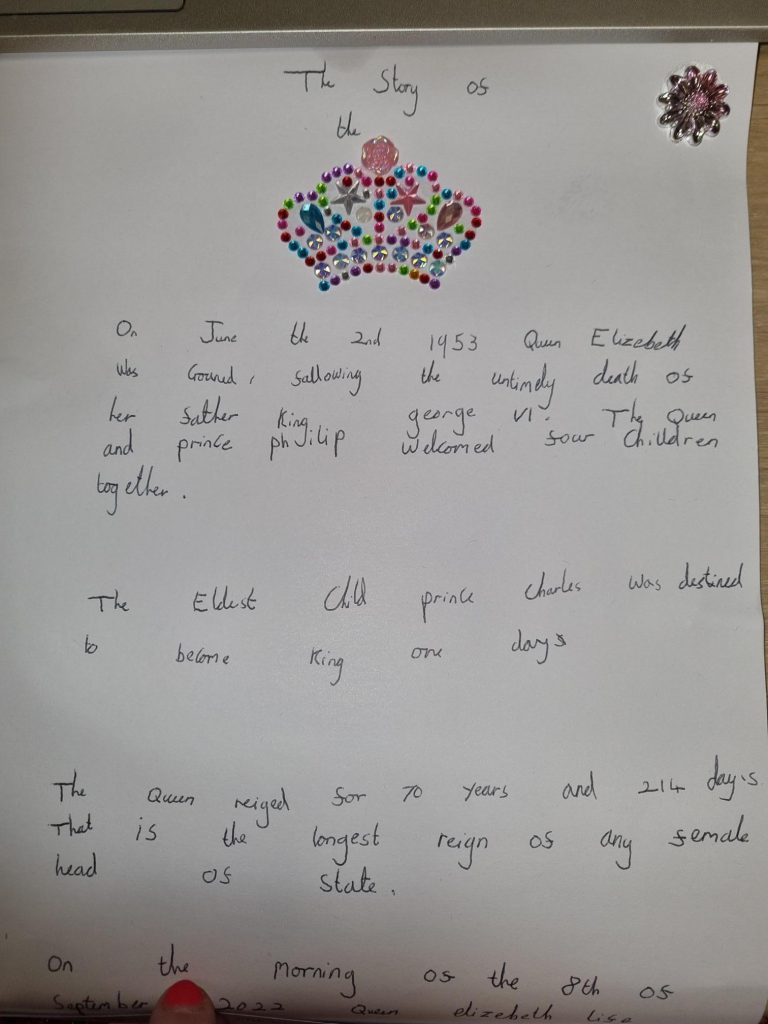 The Story of
the
On June the 2nd 1953 Queen Elizebeth
was Crowned, following the untimely death of
her father King george VI. The Queen
and prince philip welcomed four Chilldren
together.
The Eldest Child prince Charles was destined
to become King one day
The Queen reiged for 70 years and 214 day's.
That is the longest reign of any female
head of State.
On the morning of the 8th of
September 2022 Queen elizebeth life